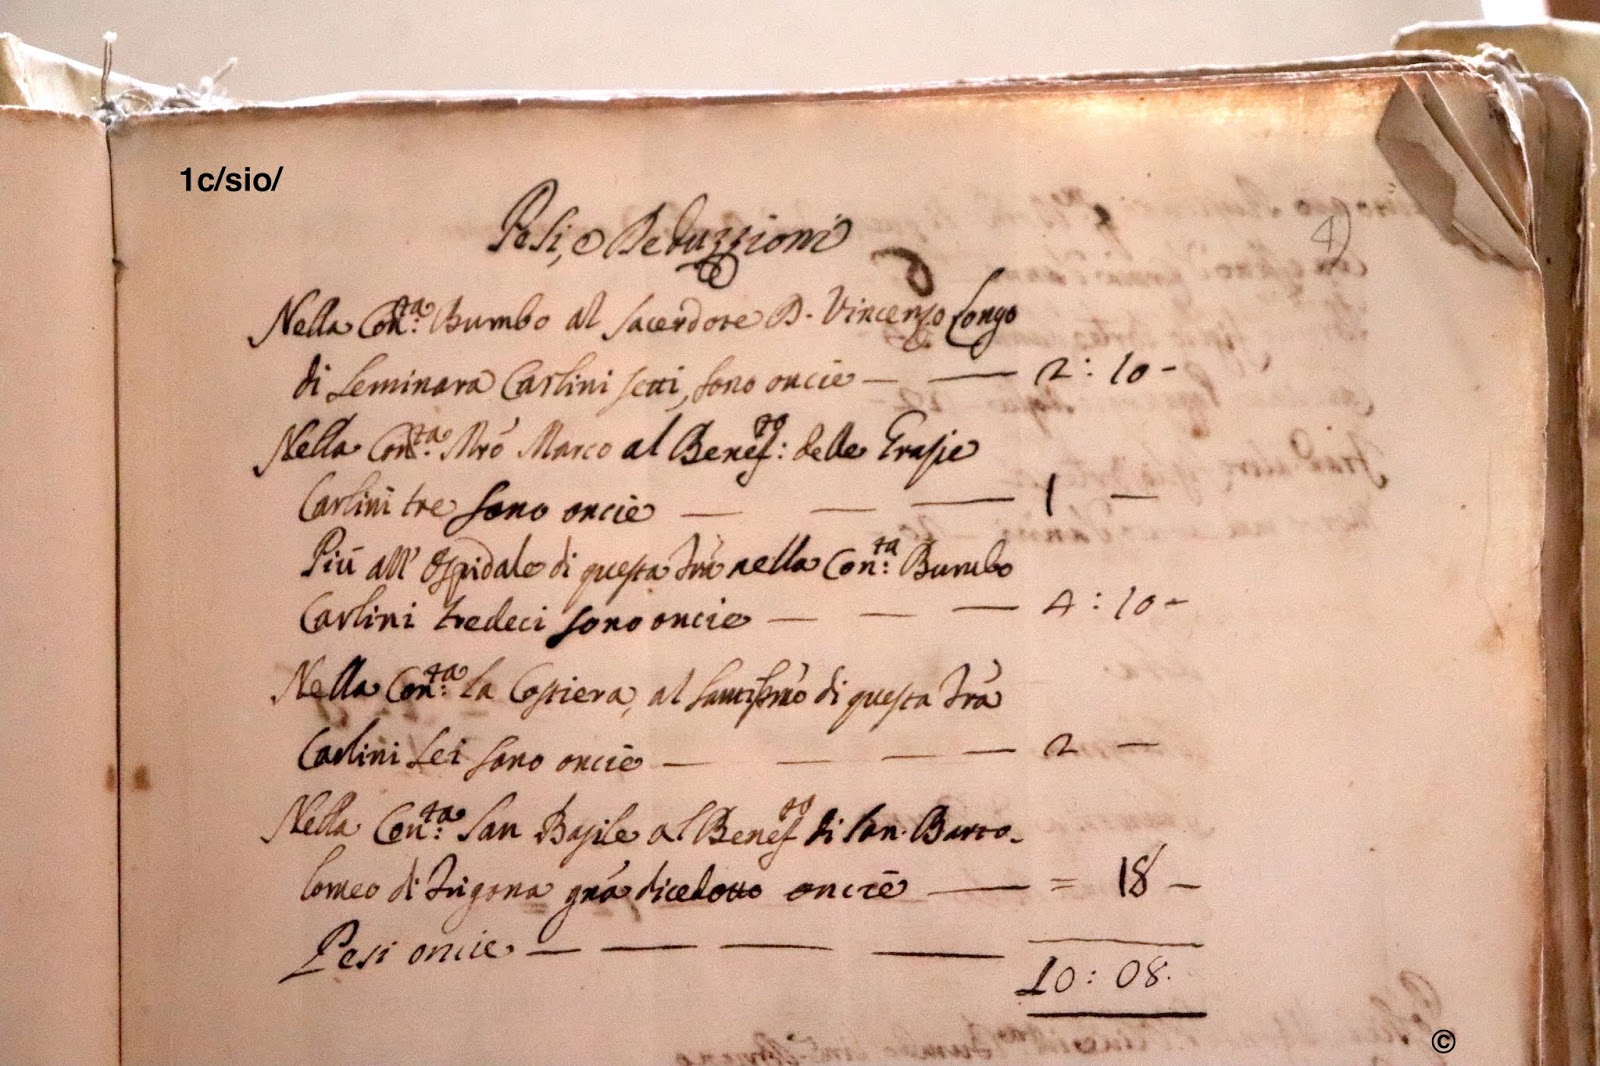 1c/sio/
Pesi, e Deduzzioni
4)
Nella Con:ta Bumbo al Sacerdote D. Vincenzo Longo
di Seminara Carlini setti, sono oncie — — 2 : 10 -
Nella Con:ta Mrò Marco al Benef:to delle Grazie
Carlini tre sono oncie — — — 1 —
Più all' Ospidale di questa Trà nella Con:ta Bumbo
Carlini tredeci sono oncie — — — 4 : 10 -
Nella Con:ta la Costiera, al Santissmò di questa Trà
Carlini Sei sono oncie — — — — 2 —
Nella Con:ta San Basile al Benefto di San Barto-
lomeo di Trigona grà dicedotto oncie — = 18 —
Pesi oncie — — — — 10 : 08.
©